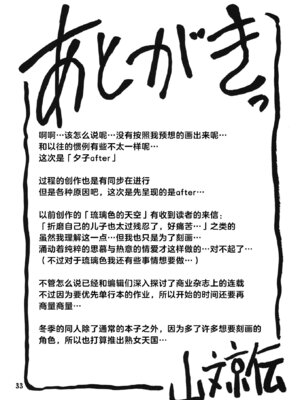 あとがきっ
啊啊…该怎么说呢…没有按照我预想的画出来呢…
和以往的惯例有些不太一样呢…
这次是「夕子after」
过程的创作也是有同步在进行
但是各种原因吧，这次是先呈现的是after…
以前创作的「琉璃色的天空」有收到读者的来信：
「折磨自己的儿子也太过残忍了，好痛苦…」之类的
虽然我理解这一点…但我也只是为了刻画…
涌动着纯粹的思慕与热意的情爱才这样做的…对不起了…
（不过对于琉璃色我还有些事情想要做…）
不管怎么说已经和编辑们深入探讨了商业杂志上的连载
不过因为要优先单行本的作业，所以开始的时间还要再
商量商量…
冬季的同人除了通常的本子之外，因为多了许多想要刻画的
角色，所以也打算推出熟女天国…
山文京伝
33